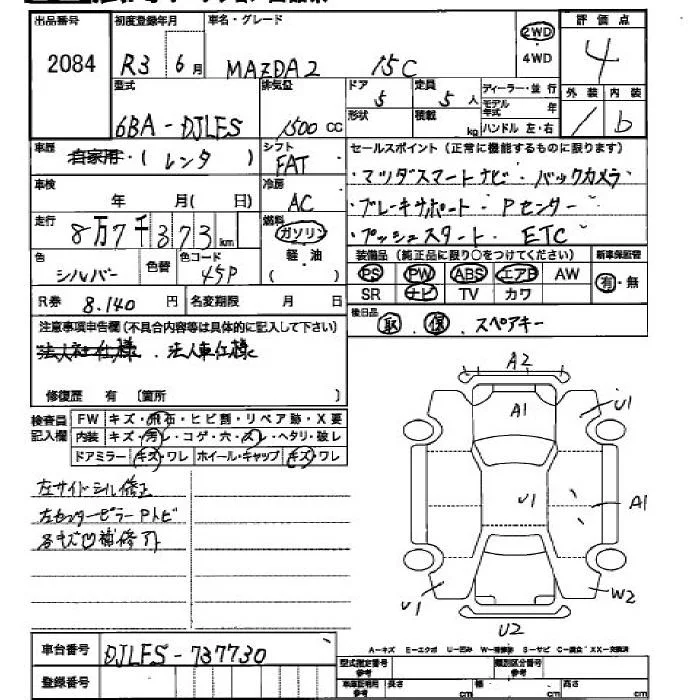 出品番号 初度登録年月 車名・グレード 2WD 評価点
2084 R3 6月 MAZDA2 15C 4WD 4
型式 排気量 ドア 5 定員 5人 ディーラー・並行 外装 内装
6BA-DJLFS 1500cc 形状 積載 kg モデル年式 年 1 b
ハンドル 左・右
車歴 自家用・(レンタ) シフト FAT セールスポイント(正常に機能するものに限ります)
車検 年 月(日) 冷房 AC ・マツダスマートナビ・バックカメラ
走行 8万7千373km 燃料 ガソリン 軽油 ・ブレーキサポート・Pセンサー
・プッシュスタート・ETC
色 シルバー 色替 色コード 45P 装備品(純正品に限り○をつけてください) 新車保証書
PS PW ABS エアB AW 有・無
SR ナビ TV カワ
R券 8.140円 名変期限 月 日 後日品 取.保.スペアキー
注意事項申告欄(不具合内容等は具体的に記入して下さい)
法人車仕様
修復歴 有〔箇所 〕
検査員記入欄 FW キズ・飛石・ヒビ割・リペア跡・X要
内装 キズ・汚レ・コゲ・穴・スレ・ヘタリ・破レ
ドアミラー キズ・ワレ ホイール・キャップ キズ・ワレ
左サイドシル修正
左センターピラーPトビ
各キズ凹補修アト
A2
A1
U1
U1
A1
U1
W2
U2
車台番号 DJLFS-737730
A-キズ E-エクボ U-凹み
登録番号 型式指定番号 参考 類別区分番号 参考
車庫証明用 参考 長さ cm 幅 cm 高さ cm